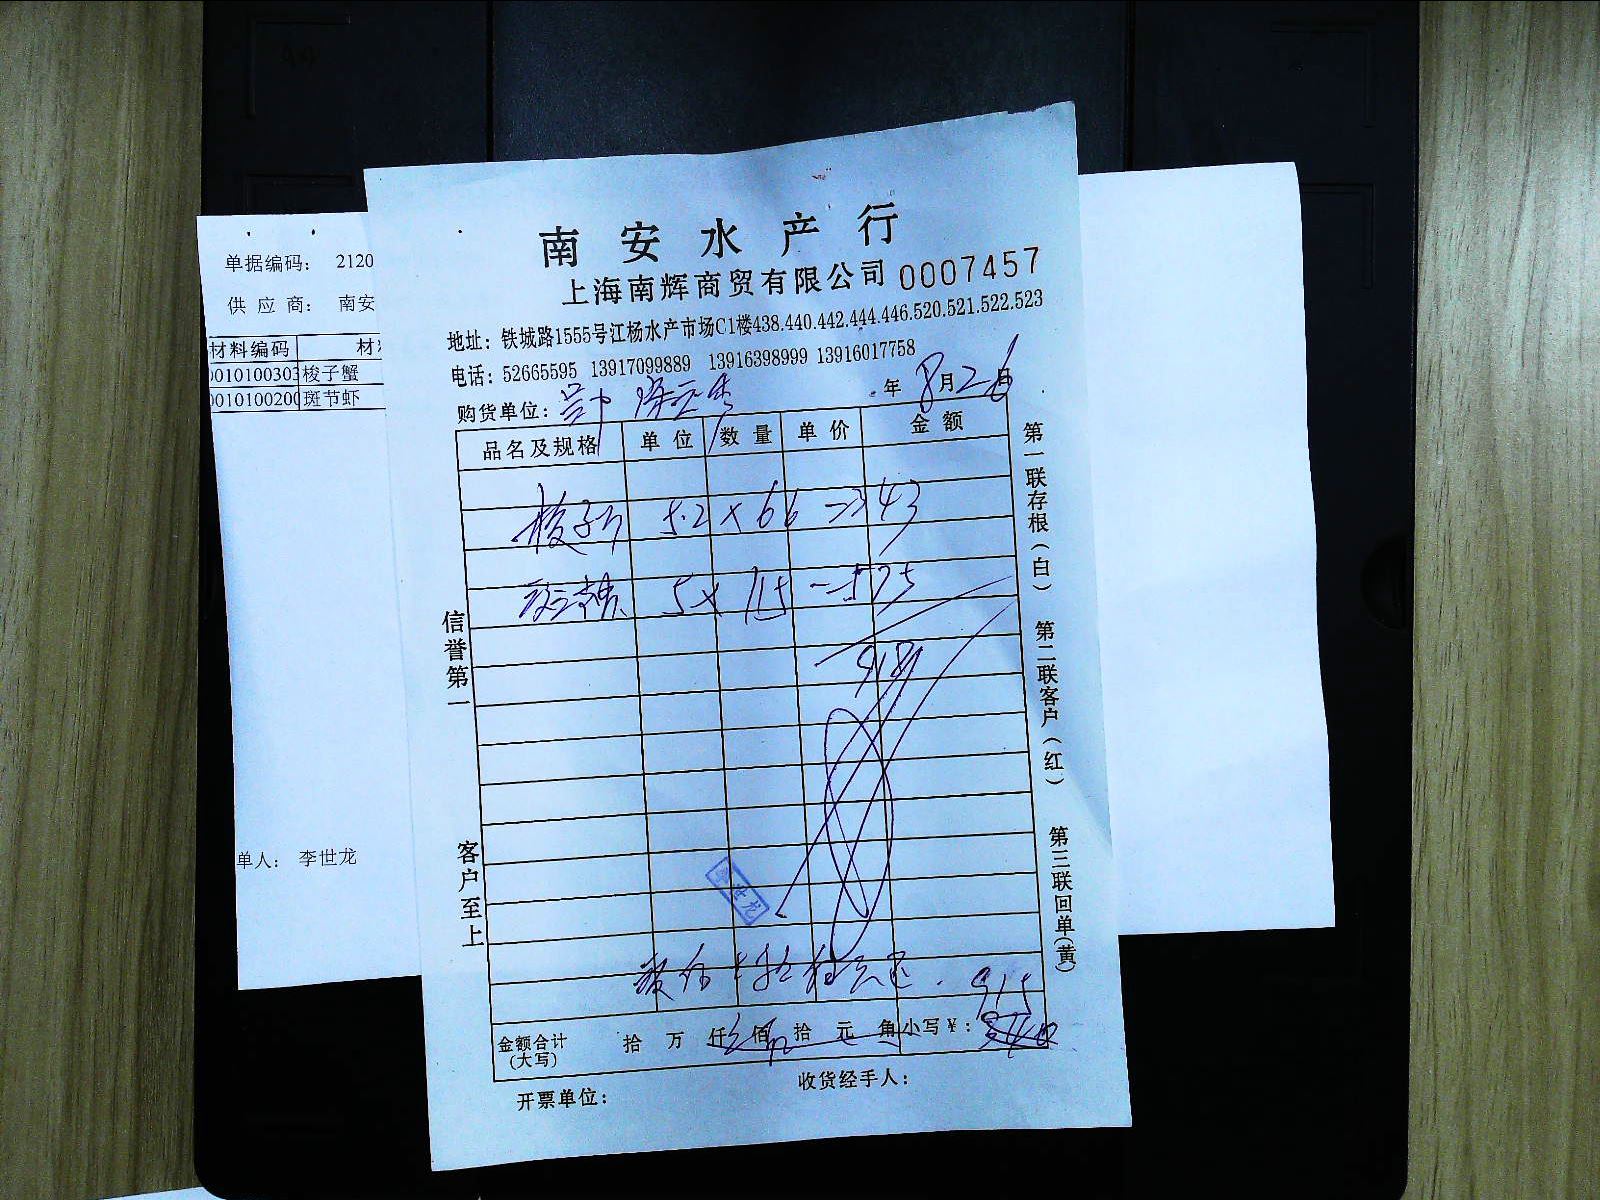 南安水产行
上海南辉商贸有限公司 0007457
地址：铁城路1555号江杨水产市场C1楼438.440.442.444.446.520.521.522.523
电话：52665595 13917099889 13916398999 13916017758
购货单位： 年 8月26日
品名及规格 单位 数量 单价 金额
梭子 5.2 x 66 = 343
5 x 115 = 575
918
李世龙
915
金额合计 (大写) 拾 万 仟 佰 拾 元 角 小写￥：
开票单位： 收货经手人：
信誉第一
客户至上
第一联存根（白）
第二联客户（红）
第三联回单（黄）
单据编码： 2120
供应商： 南安
材料编码 材
010100303 梭子蟹
010100200 斑节虾
单人： 李世龙